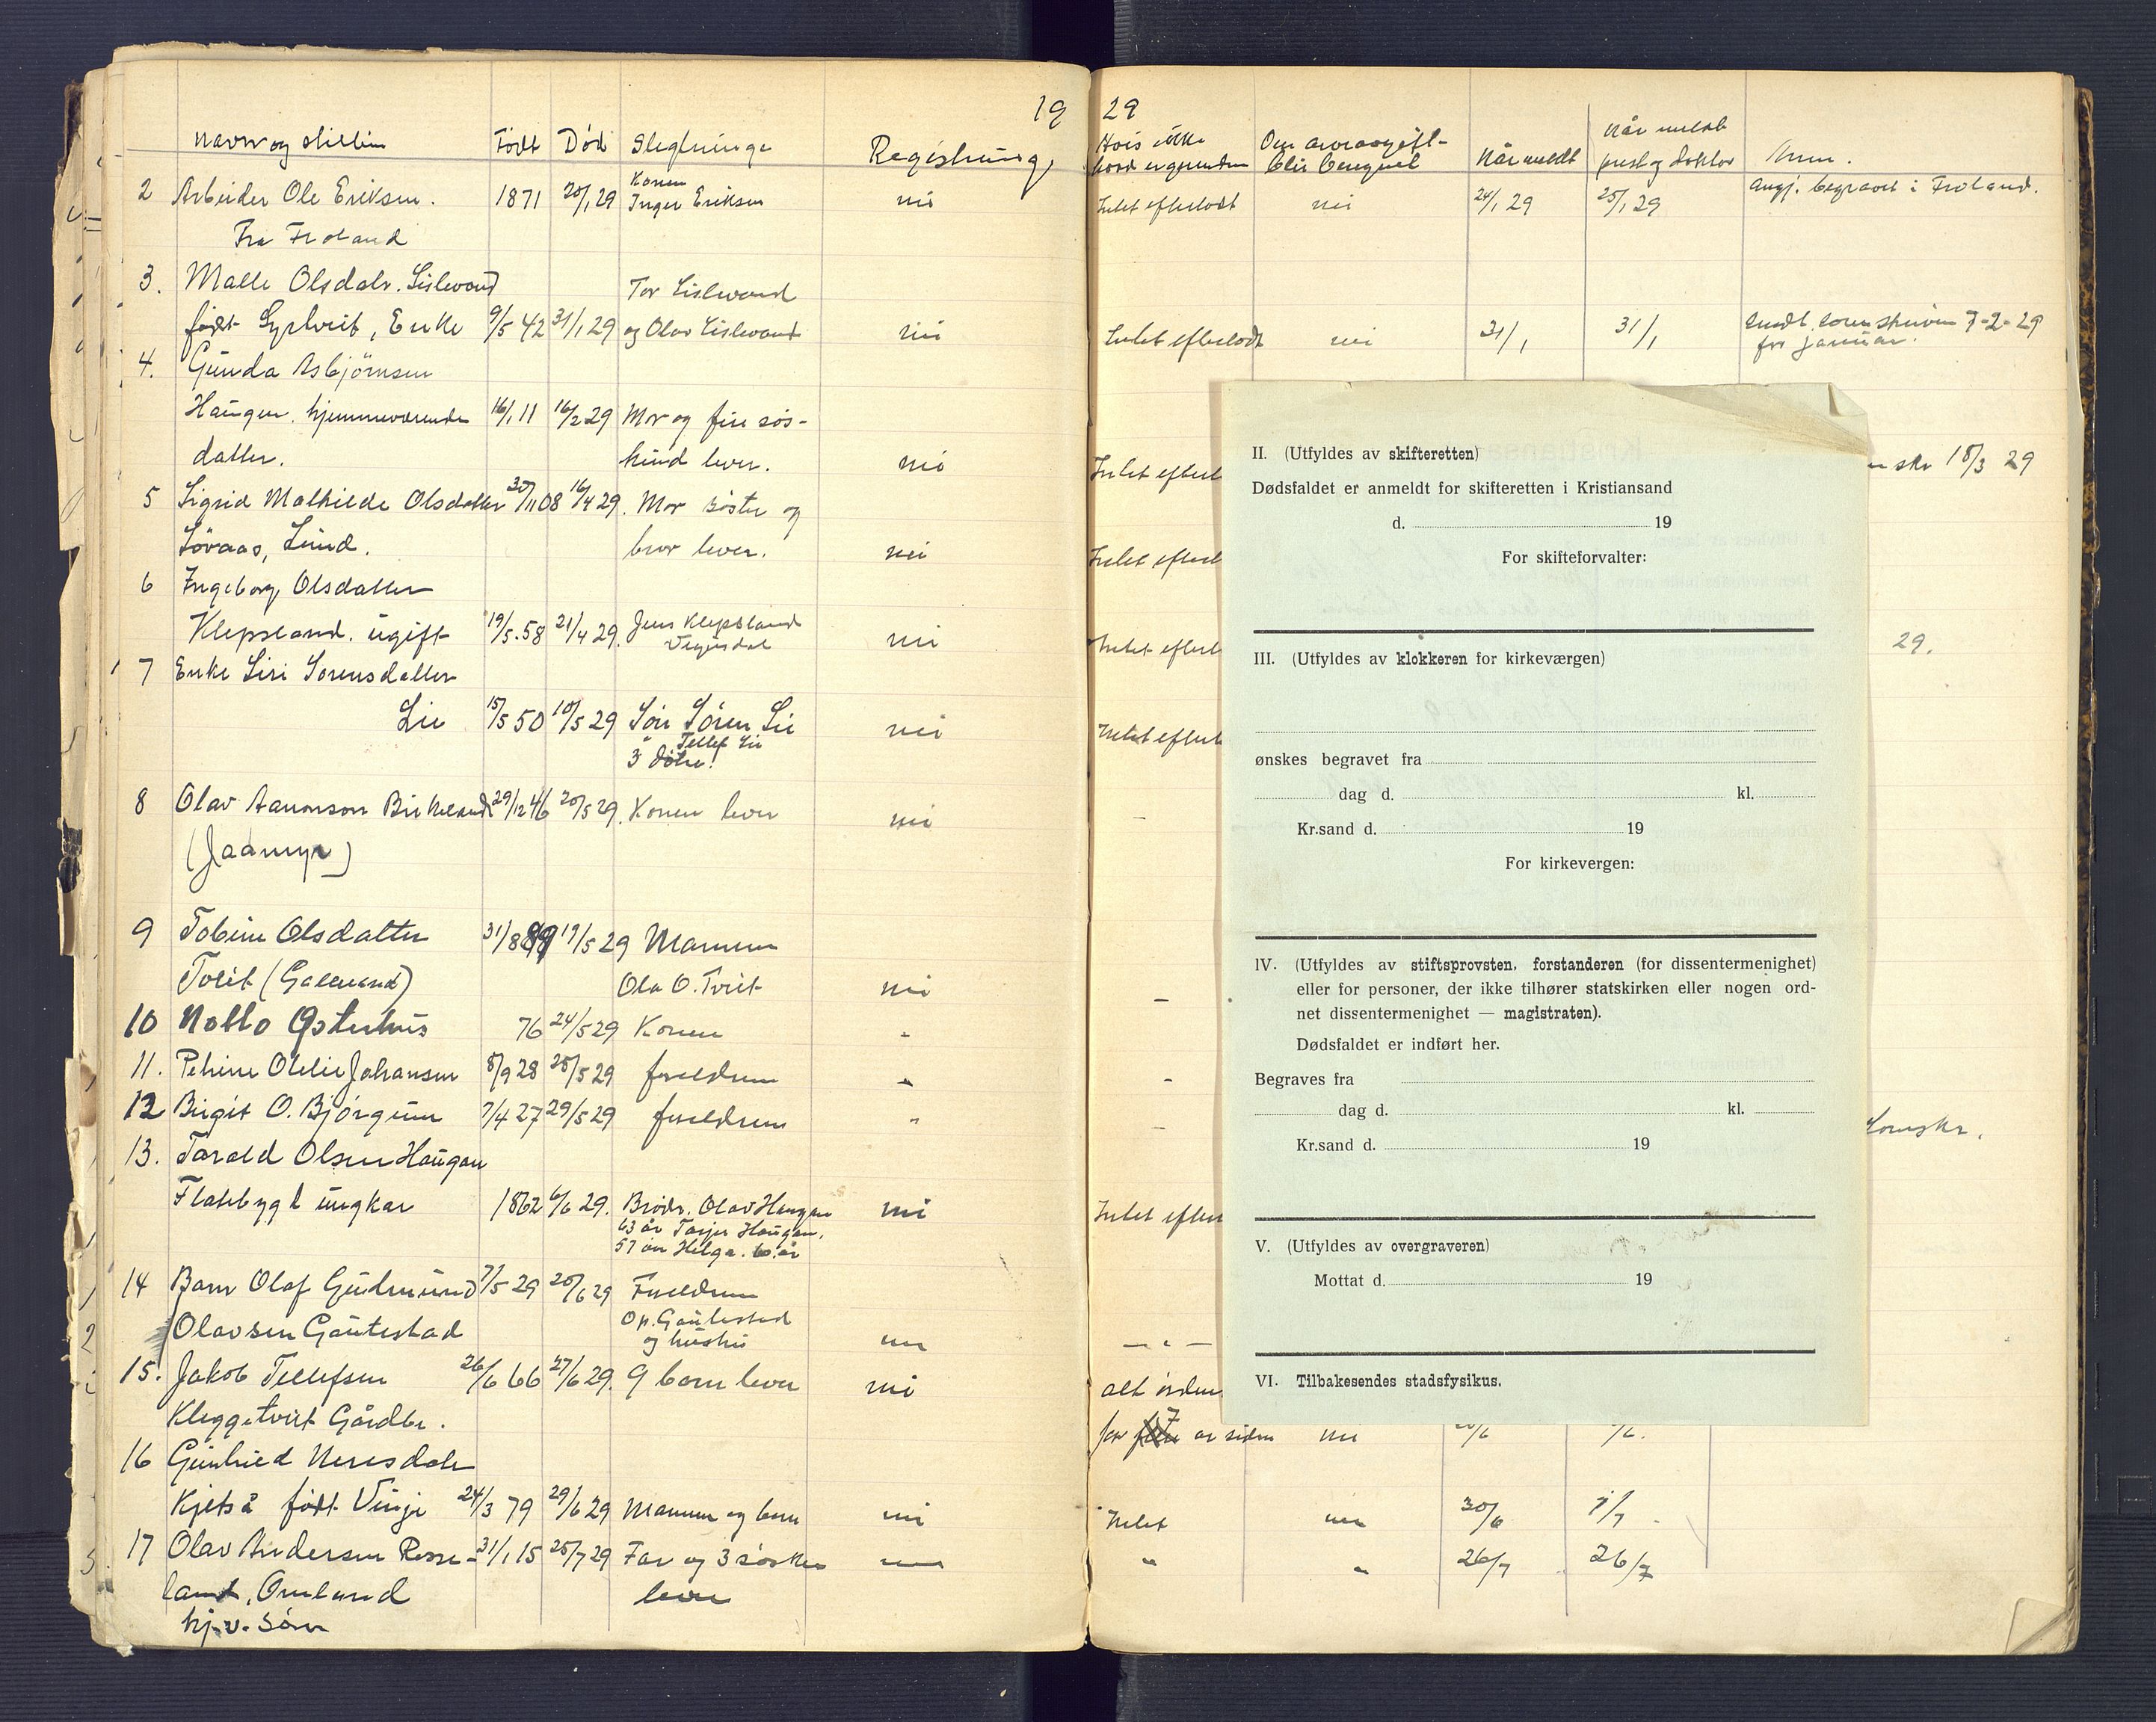 19 29
Navn og stilling Født Død Slegtninge Registrering
Hvis ikke
Om arveavgift
blir beregnet
Når meldt
Når meldt
prest og doktor
Anm.
2 Arbeider Ole Eriksen. 1871 20/1 29 Konen
Inger Eriksen nei Intet efterladt nei 24/1 29 25/1 29 begravet i Froland.
Fra Froland
3. Malle Olsdatr. Lislevand Tor Lislevand
født , Enke 9/5 42 31/1 29 og Olav Lislevand nei Intet efterladt nei 31/1 31/1 7-2-29
for januar.
4. Gunda Asbjørnsen
Haugen. hjemmeværende 16/1 11 16/2 29 Mor og fire søs-
datter. kind lever. nei Intet efterl 18/3 29
5 Sigrid Mathilde Olsdatter 30/11 08 16/4 29. Mor søster og
Løvaas, Lund. bror lever. nei Intet efterl
6 Ingeborg Olsdatter
Klepsland. ugift 19/5.58 21/4 29. Jens Klepsland
Vegusdal nei Intet efterl 29.
7 Enke Siri Sørensdatter
Lie 15/5 50 10/5 29 Søn Søren Lie nei Intet efterl
" Tellef Lie
3 døtre!
8 Olav Aanonson Birkeland 29/12 46 20/5 29. Konen lever nei -
(Jaamyr)
9 Tobine Olsdatter 31/8 89 19/5 29 Mannen
Tveit () Ola O. Tveit nei -
10 Østerhus 76 24/5 29 Konen -
11. Petrine Otelie Johansen 8/9 28 28/5 29 foreldrene - -
12 Birgit O. Bjørgum 7/4 27 29/5 29 foreldrene - -
13. Tarald Olsen Haugan
Flatebygd ungkar 1862 6/6 29. Brødr. Olav Haugan nei Intet efterl
63 år Tarjei Haugan.
57 år Helga. 60 år
14 Barn Olaf Gudmund 7/5 29 20/6 29 Foreldrene
Olavsen Gautestad O. Gautestad
og hustru nei - " -
15. Jakob Tellefsen 26/6 66 27/6 29. 9 barn lever nei alt
Kleggetveit Gårdbr. for 7 år siden nei
16 Gunhild Neresdatr
Kjetså født Vinje 24/3 79 29/6 29 Mannen og barn nei Intet nei 30/6 1/7
17 Olav Andersen Rosse- 31/1 15 25/7 29 Far og 3 søsken " " 26/7 26/7
land, Omland lever
hj.v. Søn
II. (Utfyldes av skifteretten)
Dødsfaldet er anmeldt for skifteretten i Kristiansand
d. 19
For skifteforvalter:
III. (Utfyldes av klokkeren for kirkeværgen)
ønskes begravet fra
dag d. kl.
Kr.sand d. 19
For kirkevergen:
IV. (Utfyldes av stiftsprovsten, forstanderen (for dissentermenighet)
eller for personer, der ikke tilhører statskirken eller nogen ord-
net dissentermenighet — magistraten).
Dødsfaldet er indført her.
Begraves fra
dag d. kl.
Kr.sand d. 19
V. (Utfyldes av overgraveren)
Mottat d. 19
VI. Tilbakesendes stadsfysikus.